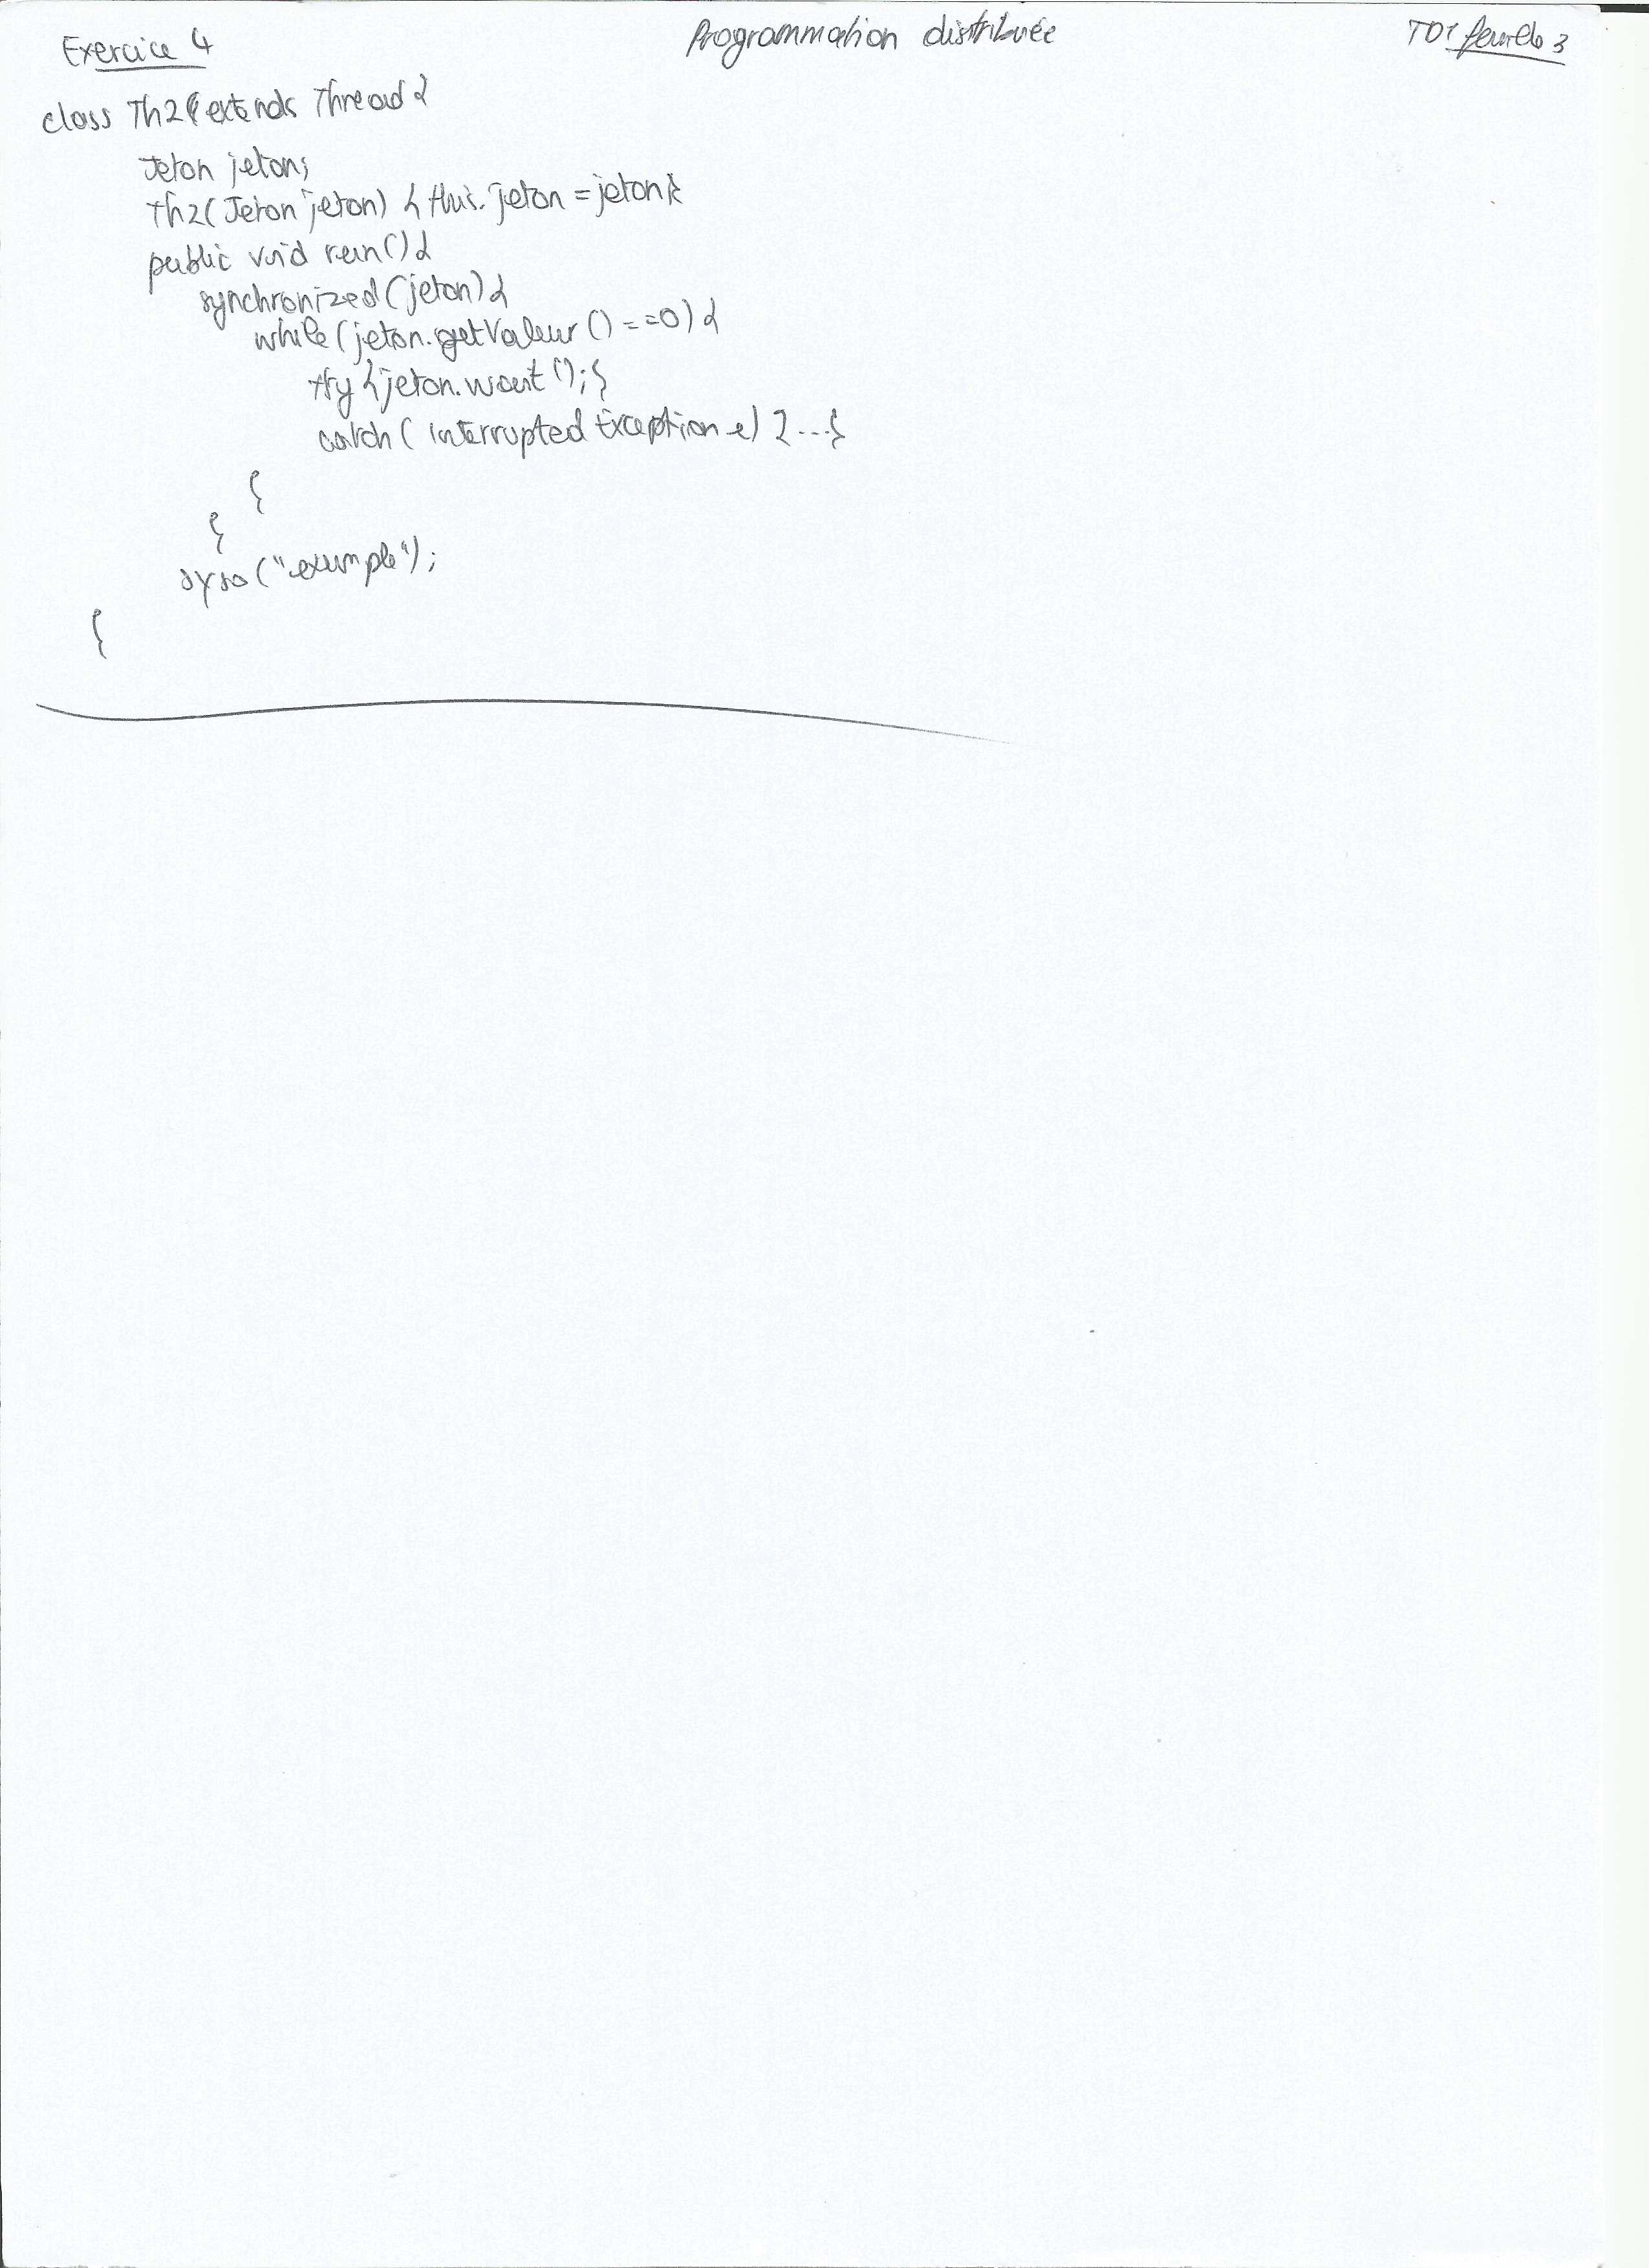 Exercice 4
Programmation distribuée
TD1 feuille 3
class Th2 extends Thread {
Jeton jeton;
Th2(Jeton jeton) { this.jeton = jeton }
public void run() {
synchronized(jeton) {
while(jeton.getValeur() == 0) {
try { jeton.wait(); }
catch( interrupted Exception e) { ... }
}
}
syso("exemple");
}